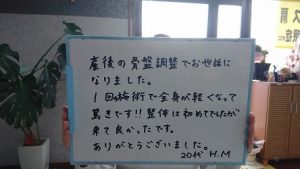 産後の骨盤調整でお世話に
なりました。
1回の施術で全身が軽くなって
驚きです!!整体は初めてでしたが
来て良かったです。
ありがとうございました。
20代 H.M